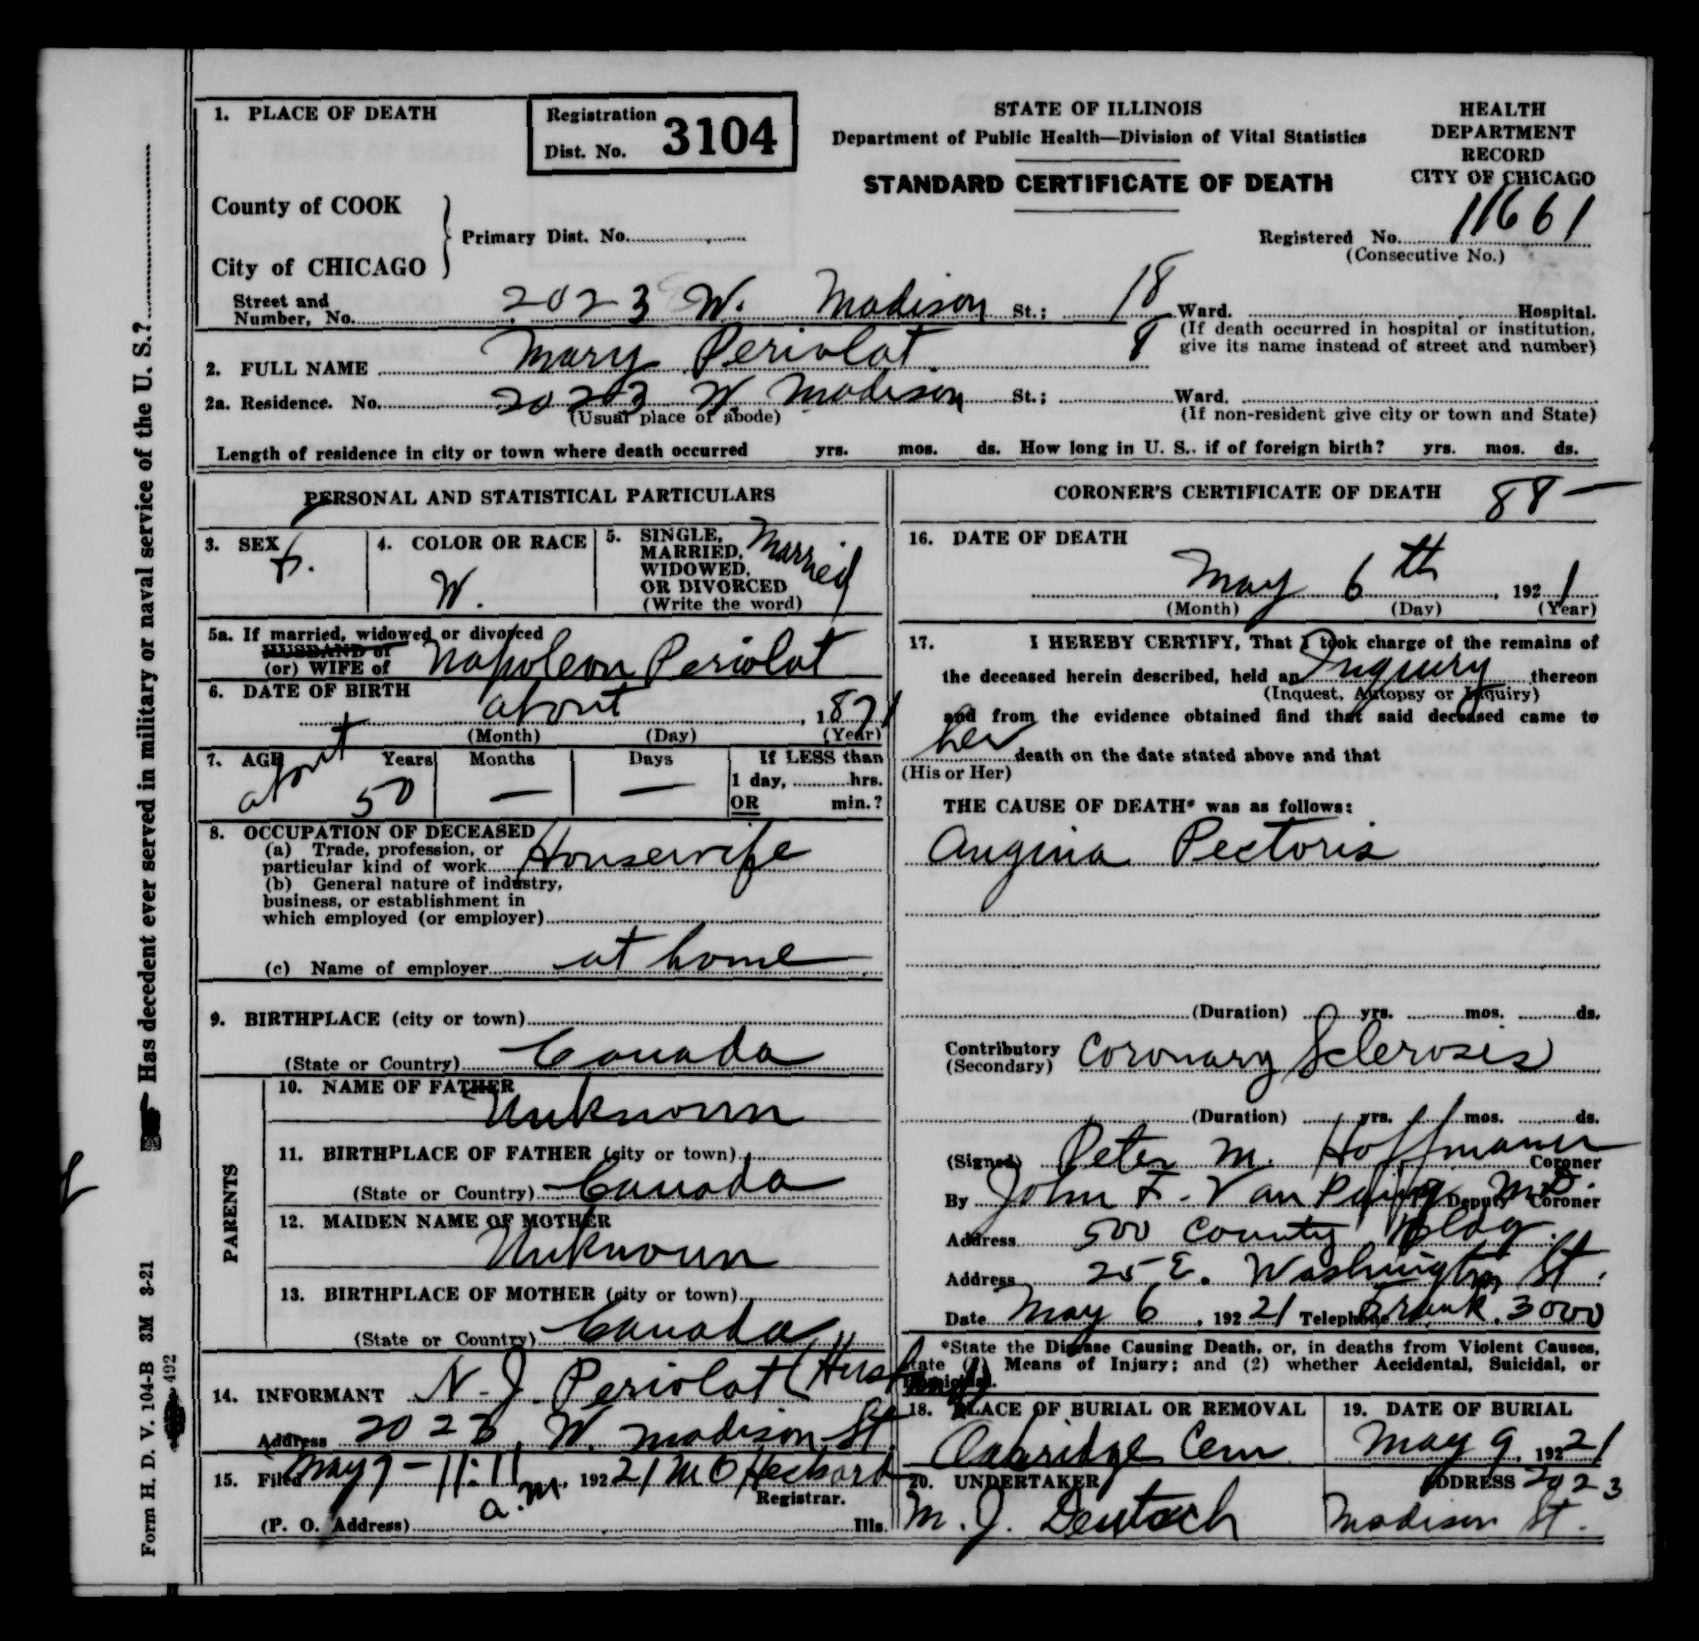 1. PLACE OF DEATH
Registration
Dist. No. 3104
STATE OF ILLINOIS
Department of Public Health—Division of Vital Statistics
STANDARD CERTIFICATE OF DEATH
HEALTH
DEPARTMENT
RECORD
CITY OF CHICAGO
County of COOK
City of CHICAGO
Primary Dist. No.
Registered No. 11661
(Consecutive No.)
Street and
Number, No. 2023 W. Madison St.; 18 Ward. Hospital.
(If death occurred in hospital or institution,
give its name instead of street and number)
2. FULL NAME Mary Periolat
2a. Residence. No. 2023 W Madison St.; Ward.
(Usual place of abode)
(If non-resident give city or town and State)
Length of residence in city or town where death occurred yrs. mos. ds. How long in U. S., if of foreign birth? yrs. mos. ds.
PERSONAL AND STATISTICAL PARTICULARS
3. SEX
F.
4. COLOR OR RACE
W.
5. SINGLE,
MARRIED,
WIDOWED,
OR DIVORCED
(Write the word)
Married
5a. If married, widowed or divorced
HUSBAND of
(or) WIFE of Napoleon Periolat
6. DATE OF BIRTH
about, 1871
(Month) (Day) (Year)
7. AGE Years Months Days
about 50 — —
If LESS than
1 day, hrs.
OR min.?
8. OCCUPATION OF DECEASED
(a) Trade, profession, or
particular kind of work Housewife
(b) General nature of industry,
business, or establishment in
which employed (or employer)
(c) Name of employer at home
9. BIRTHPLACE (city or town)
(State or Country) Canada
PARENTS
10. NAME OF FATHER
Unknown
11. BIRTHPLACE OF FATHER (city or town)
(State or Country) Canada
12. MAIDEN NAME OF MOTHER
Unknown
13. BIRTHPLACE OF MOTHER (city or town)
(State or Country) Canada
14. INFORMANT N. J. Periolat (Husband)
Address 2023 W. Madison St
15. Filed May 9 - 11:11 a.m., 19221 M O Heckard
Registrar.
(P. O. Address) Ills.
CORONER'S CERTIFICATE OF DEATH 88 —
16. DATE OF DEATH
May 6th, 1921
(Month) (Day) (Year)
17. I HEREBY CERTIFY, That I took charge of the remains of
the deceased herein described, held an Inquiry thereon
(Inquest, Autopsy or Inquiry)
and from the evidence obtained find that said deceased came to
her death on the date stated above and that
(His or Her)
THE CAUSE OF DEATH* was as follows:
Angina Pectoris
(Duration) yrs. mos. ds.
Contributory
(Secondary) Coronary Sclerosis
(Duration) yrs. mos. ds.
(Signed) Peter M. Hoffmann Coroner
By John F. Van M.D. Deputy Coroner
Address 500 County Bldg.
Address 25 E. Washington St.
Date May 6, 19221 Telephone Frank. 3000
*State the Disease Causing Death, or, in deaths from Violent Causes,
state (1) Means of Injury; and (2) whether Accidental, Suicidal, or
Homicidal.
18. PLACE OF BURIAL OR REMOVAL
Oakridge Cem
19. DATE OF BURIAL
May 9, 19221
20. UNDERTAKER
M. J. Deutsch
ADDRESS 2023
Madison St.
Has decedent ever served in military or naval service of the U. S.?
Form H. D. V. 104-B 3M 3-21
492